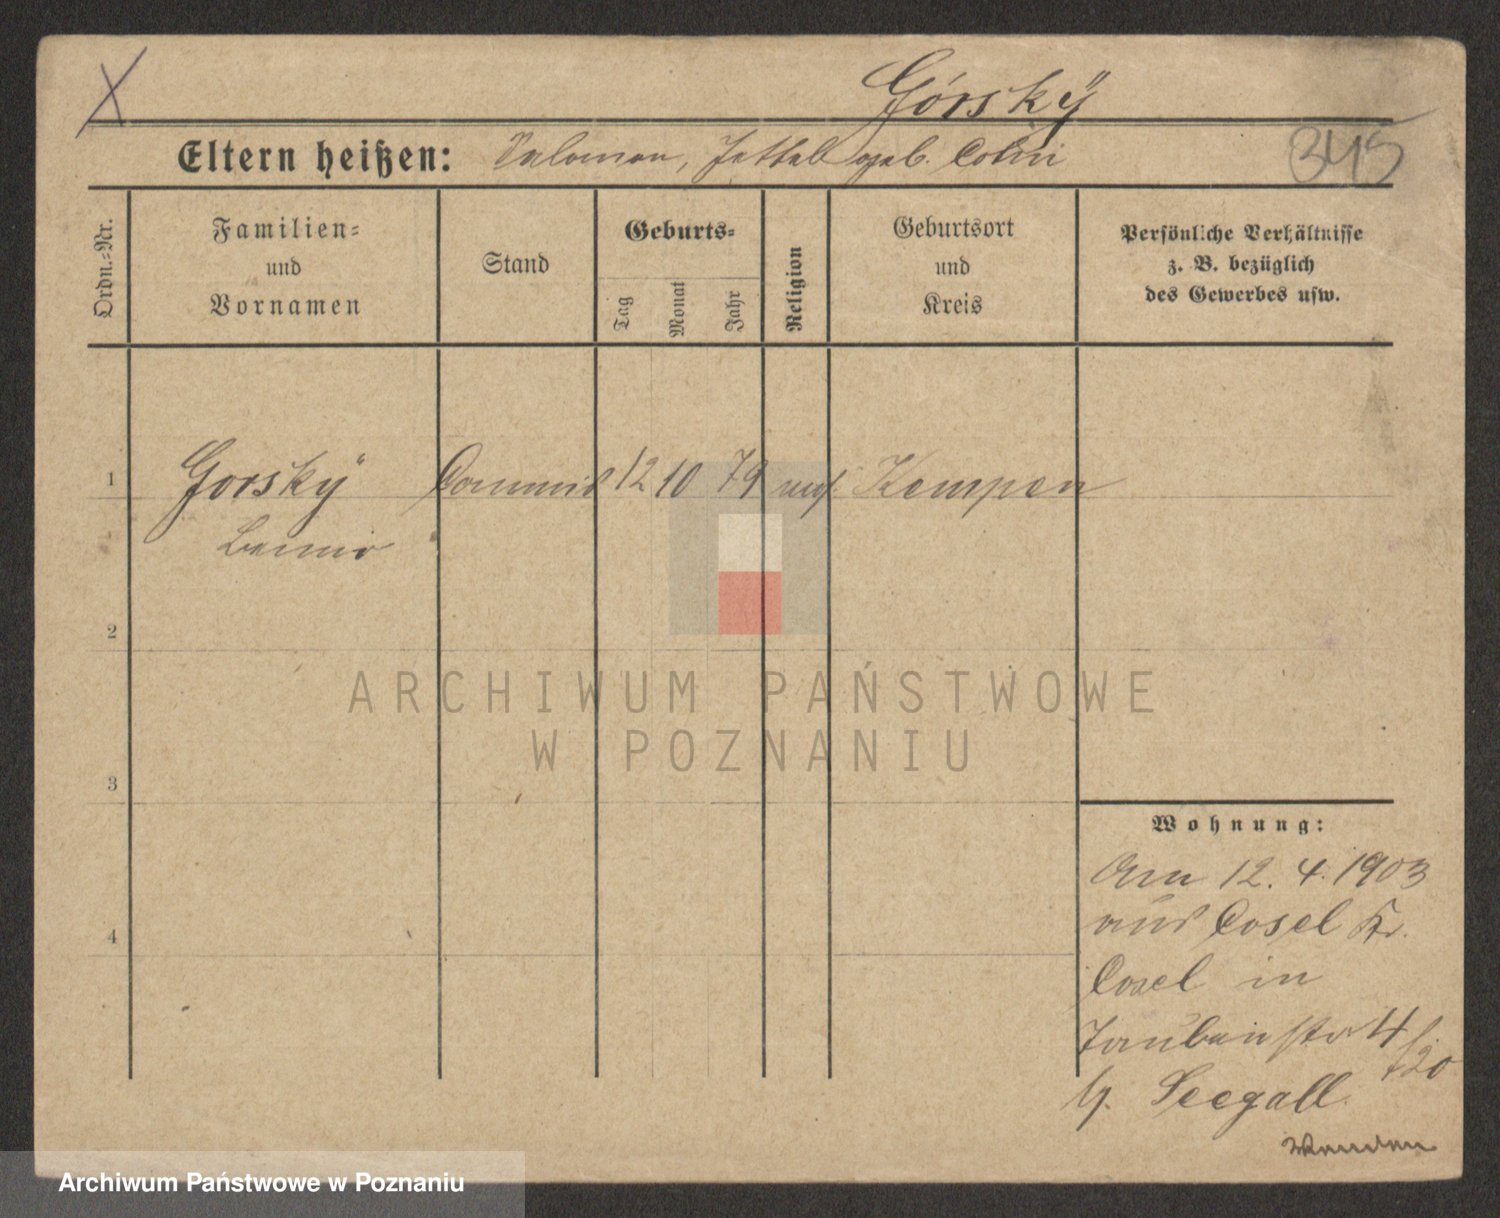 X
Górsky
345
Eltern heißen: Salomon, Jettel geb. Cohn
Ordn.-Nr.
Familien-
und
Vornamen
Stand
Geburts-
Tag
Monat
Jahr
Religion
Geburtsort
und
Kreis
Persönliche Verhältnisse
z. B. bezüglich
des Gewerbes usw.
1
Gorsky Commis 12 10 79 mos. Kempen
Benno
2
ARCHIWUM PAŃSTWOWE
W POZNANIU
3
4
Wohnung:
Am 12. 4. 1903
aus Cosel Kr.
Cosel in
Taubenstr 4/20
b. Seegall
Wenden
Archiwum Państwowe w Poznaniu